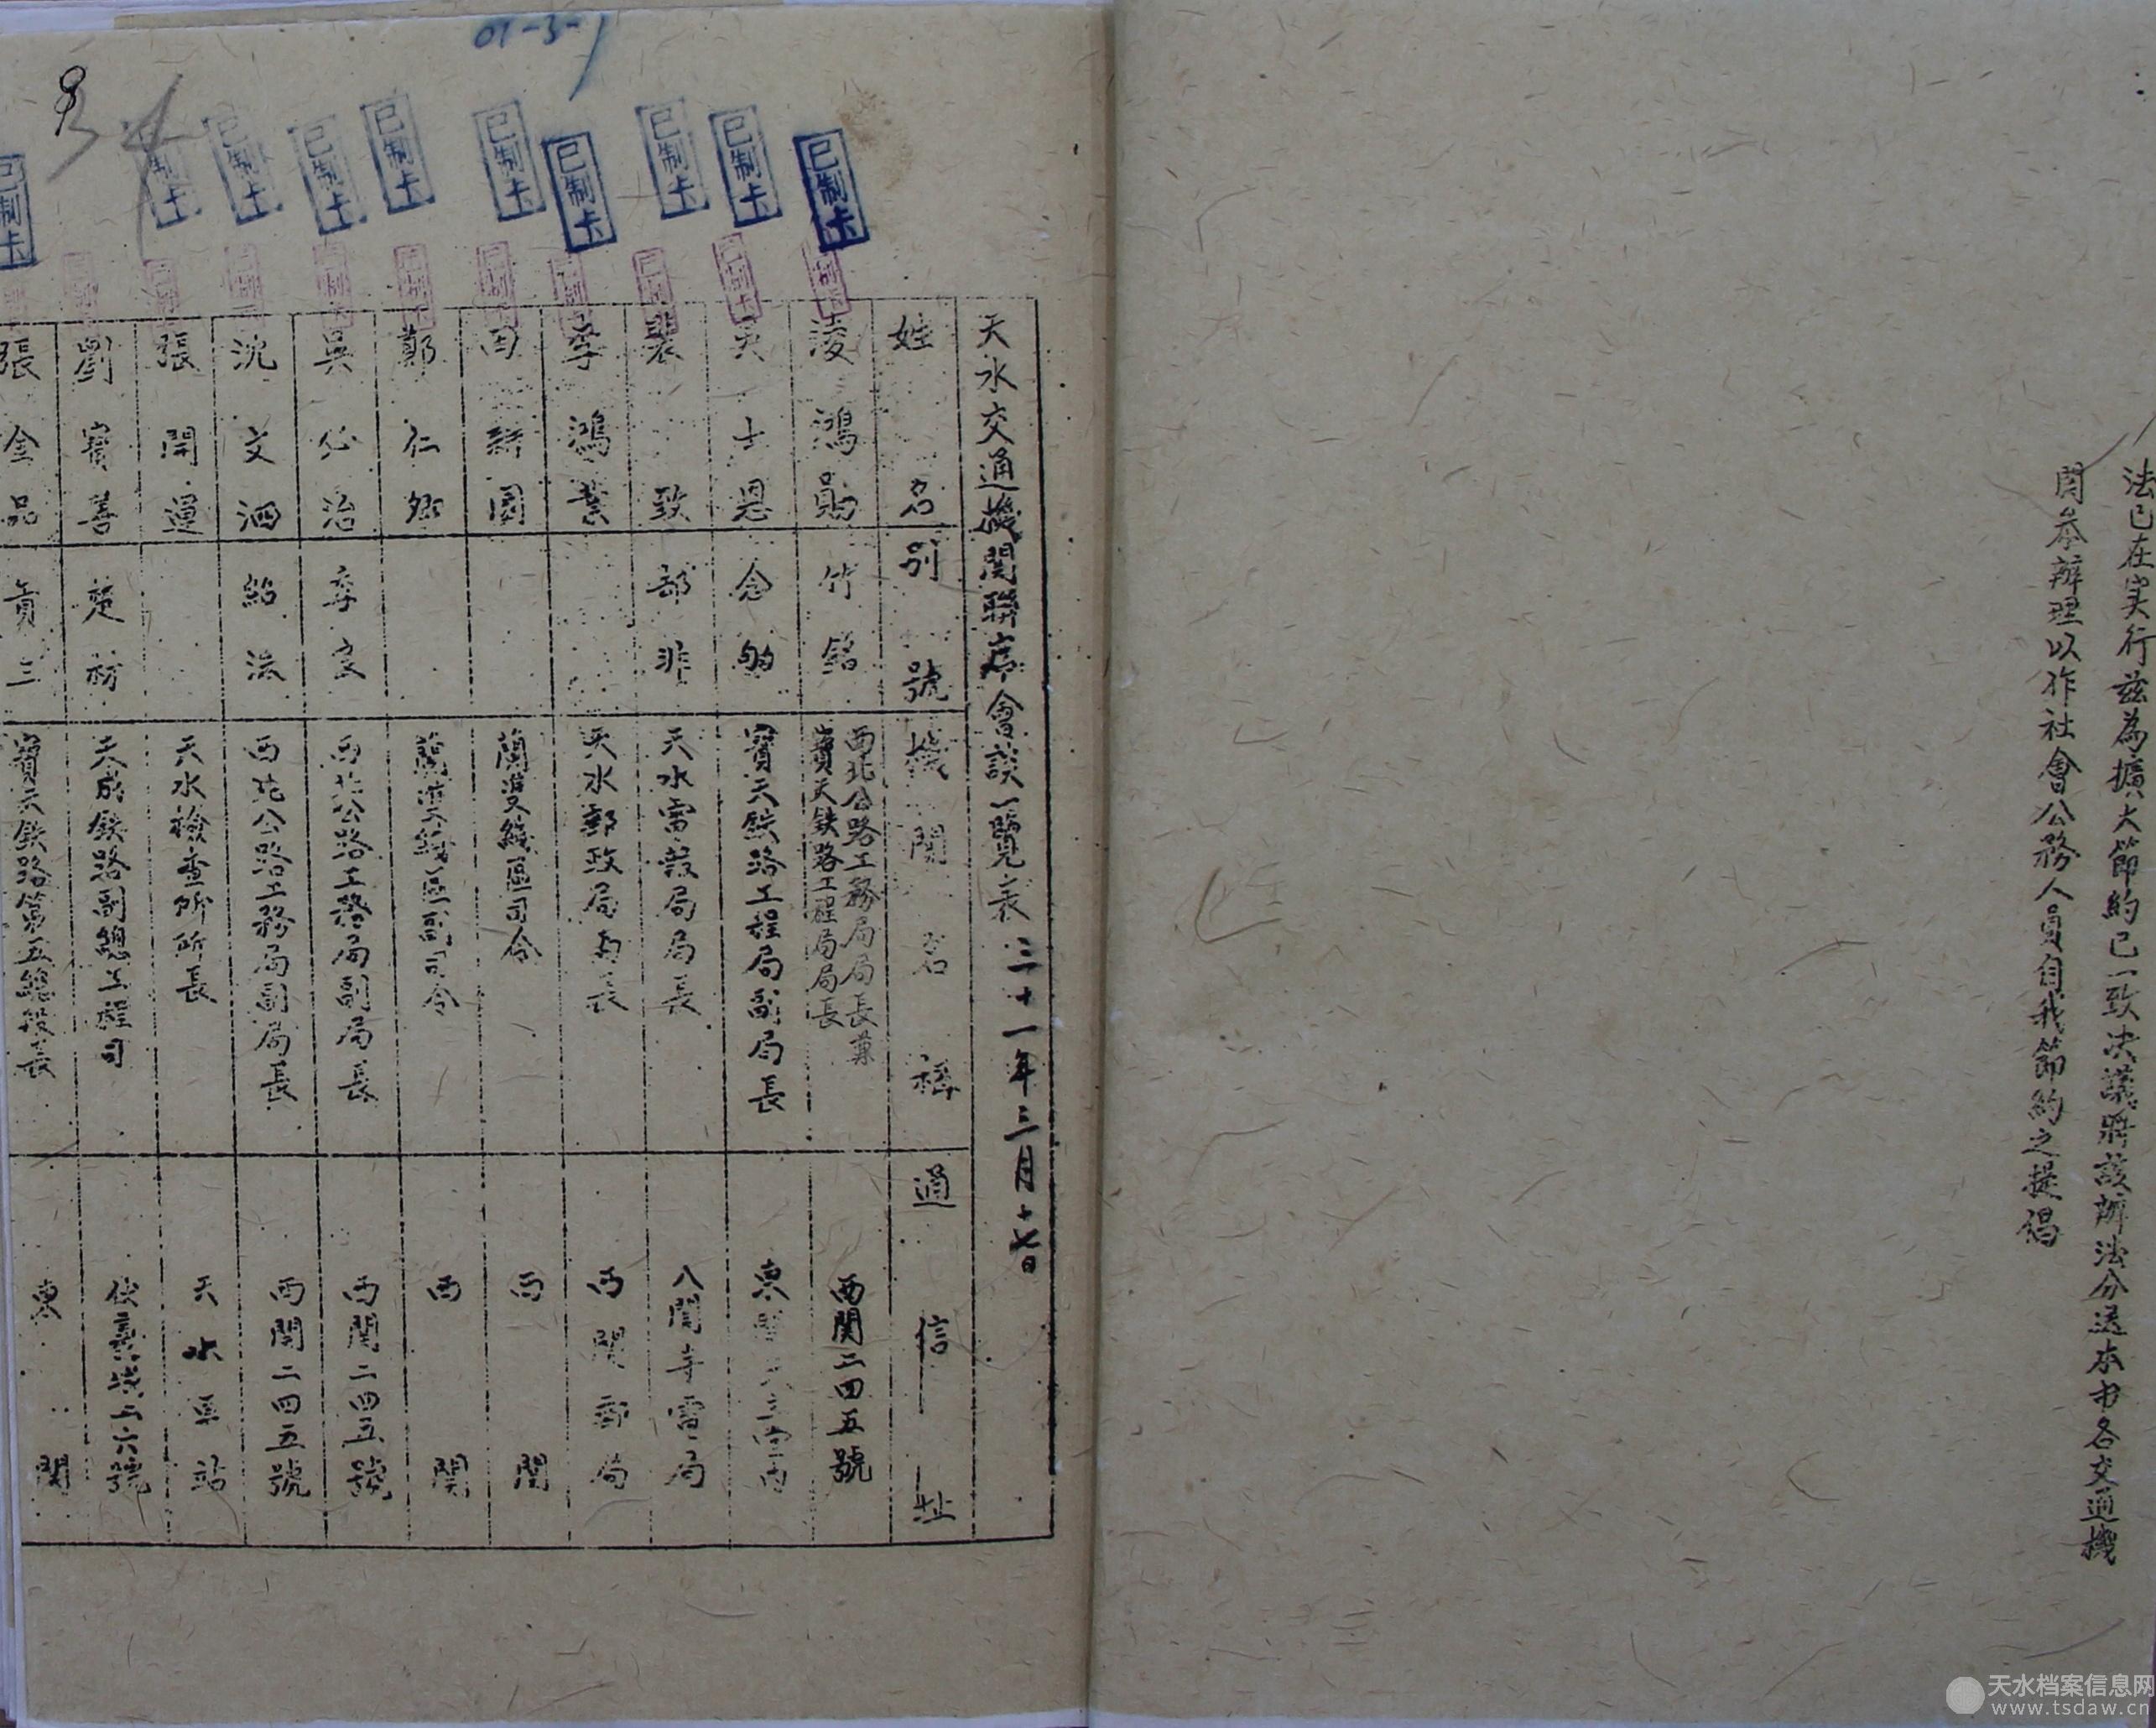 法已在实行兹為擴大節約已一致决議將該辦法分送本市各交通機
関参辦理以作社會公務人員自我節約之提倡
天水交通機関聯席會談一覽表 三十一年三月十七日
姓名 別號 機関名稱 通信址
淩鴻勛 竹銘 西北公路工務局局長兼寶天鉄路工程局局長 西関二四五號
士恩 念劬 寶天鉄路工程局副局長 東
裴致 部非 天水電報局局長 八関寺電局
李鴻業 天水郵政局局長 西関郵局
田 園 蘭雙綫區司令 西関
鄭仁卿 蘭雙綫區副司令 西関
吳必治 季良 西北公路工務局副局長 西関二四五號
沈文泗 紹洙 西北公路工務局副局長 西関二四五號
張開運 天水檢查所所長 天水車站
劉寶善 楚材 天成鉄路副總工程司 六號
張金品 貢三 寶天鉄路第五總段長 東関
01-3-1
已制卡
已制卡
已制卡
已制卡
已制卡
已制卡
已制卡
已制卡
已制卡
已制卡
天水档案信息网
www.tsdaw.cn